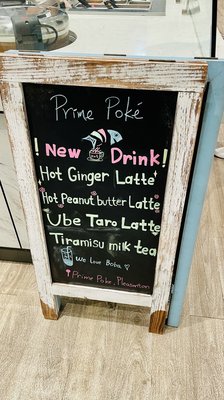 Prime Poké
! New Drink!
Hot Ginger Latte
Hot Peanut butter Latte
Ube Taro Latte
Tiramisu milk tea
We Love Boba
Prime Poke, Pleasanton